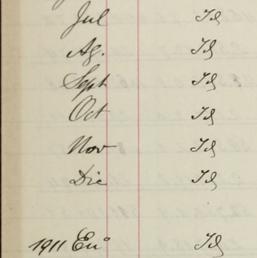 Jul Id
Ag. Id
Sept Id
Oct Id
Nov Id
Dic Id
1911 En° Id